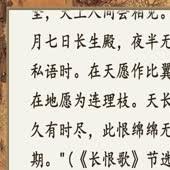 ，天上人间会相见。
月七日长生殿，夜半无
私语时。在天愿作比翼
在地愿为连理枝。天长
久有时尽，此恨绵绵无
期。"(《长恨歌》节选